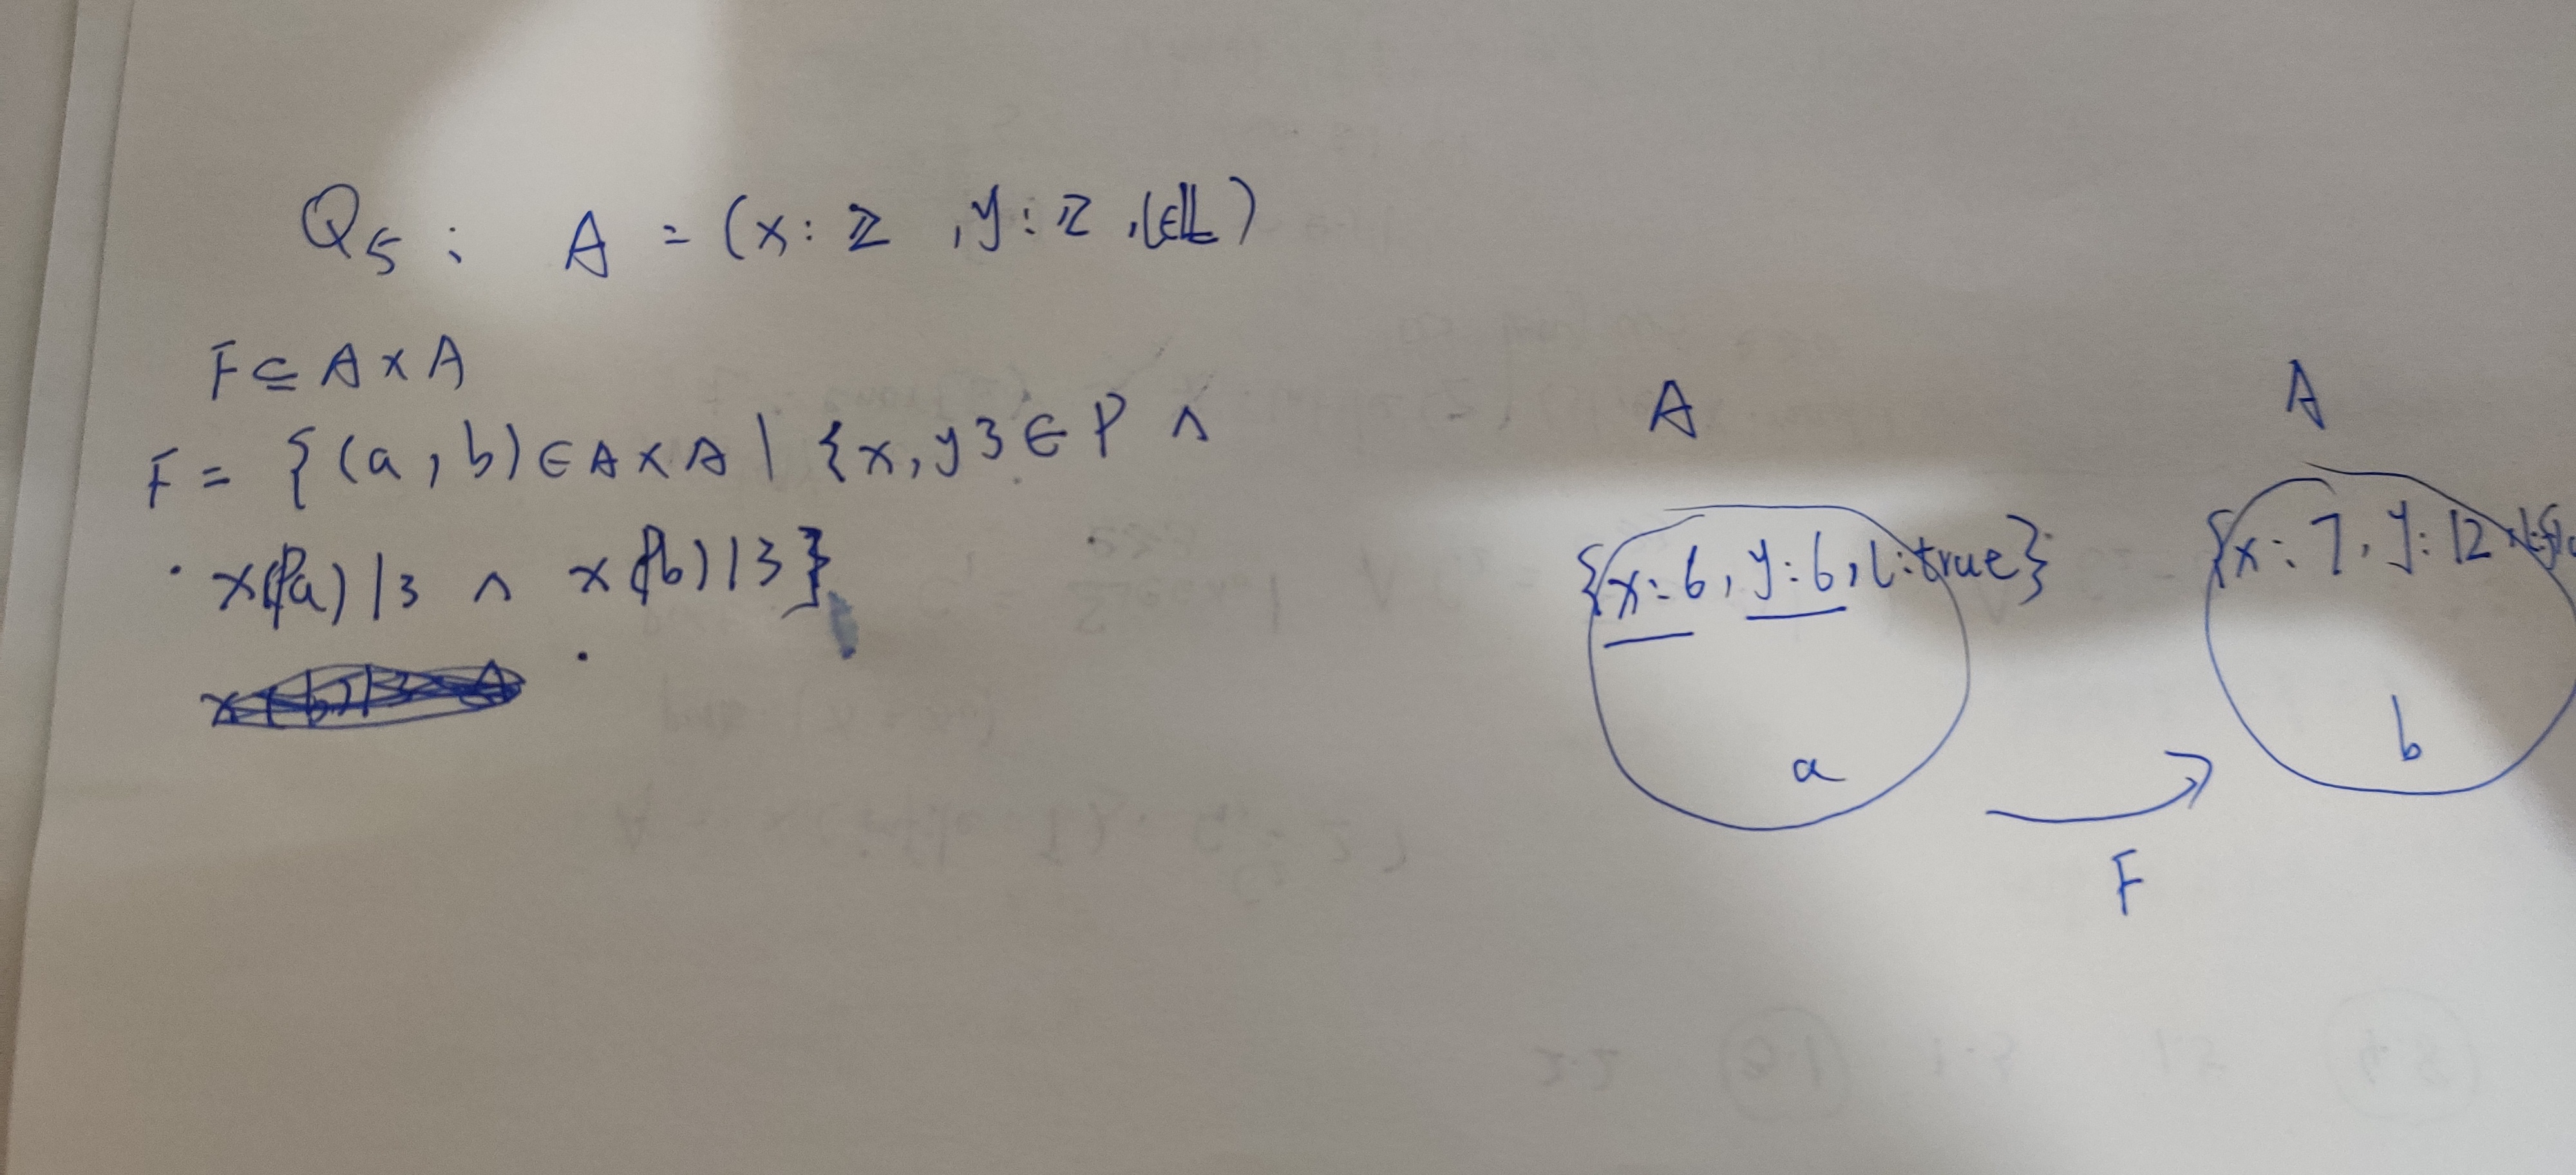 Q5: A = (x: ℤ, y: ℤ, l: 𝕃)
F ⊆ A × A
F = {(a, b) ∈ A × A | {x, y} ∈ P ∧
x(a) | 3 ∧ x(b) | 3}
A A
{x: 6, y: 6, l: true} {x: 7, y: 12
a b
F